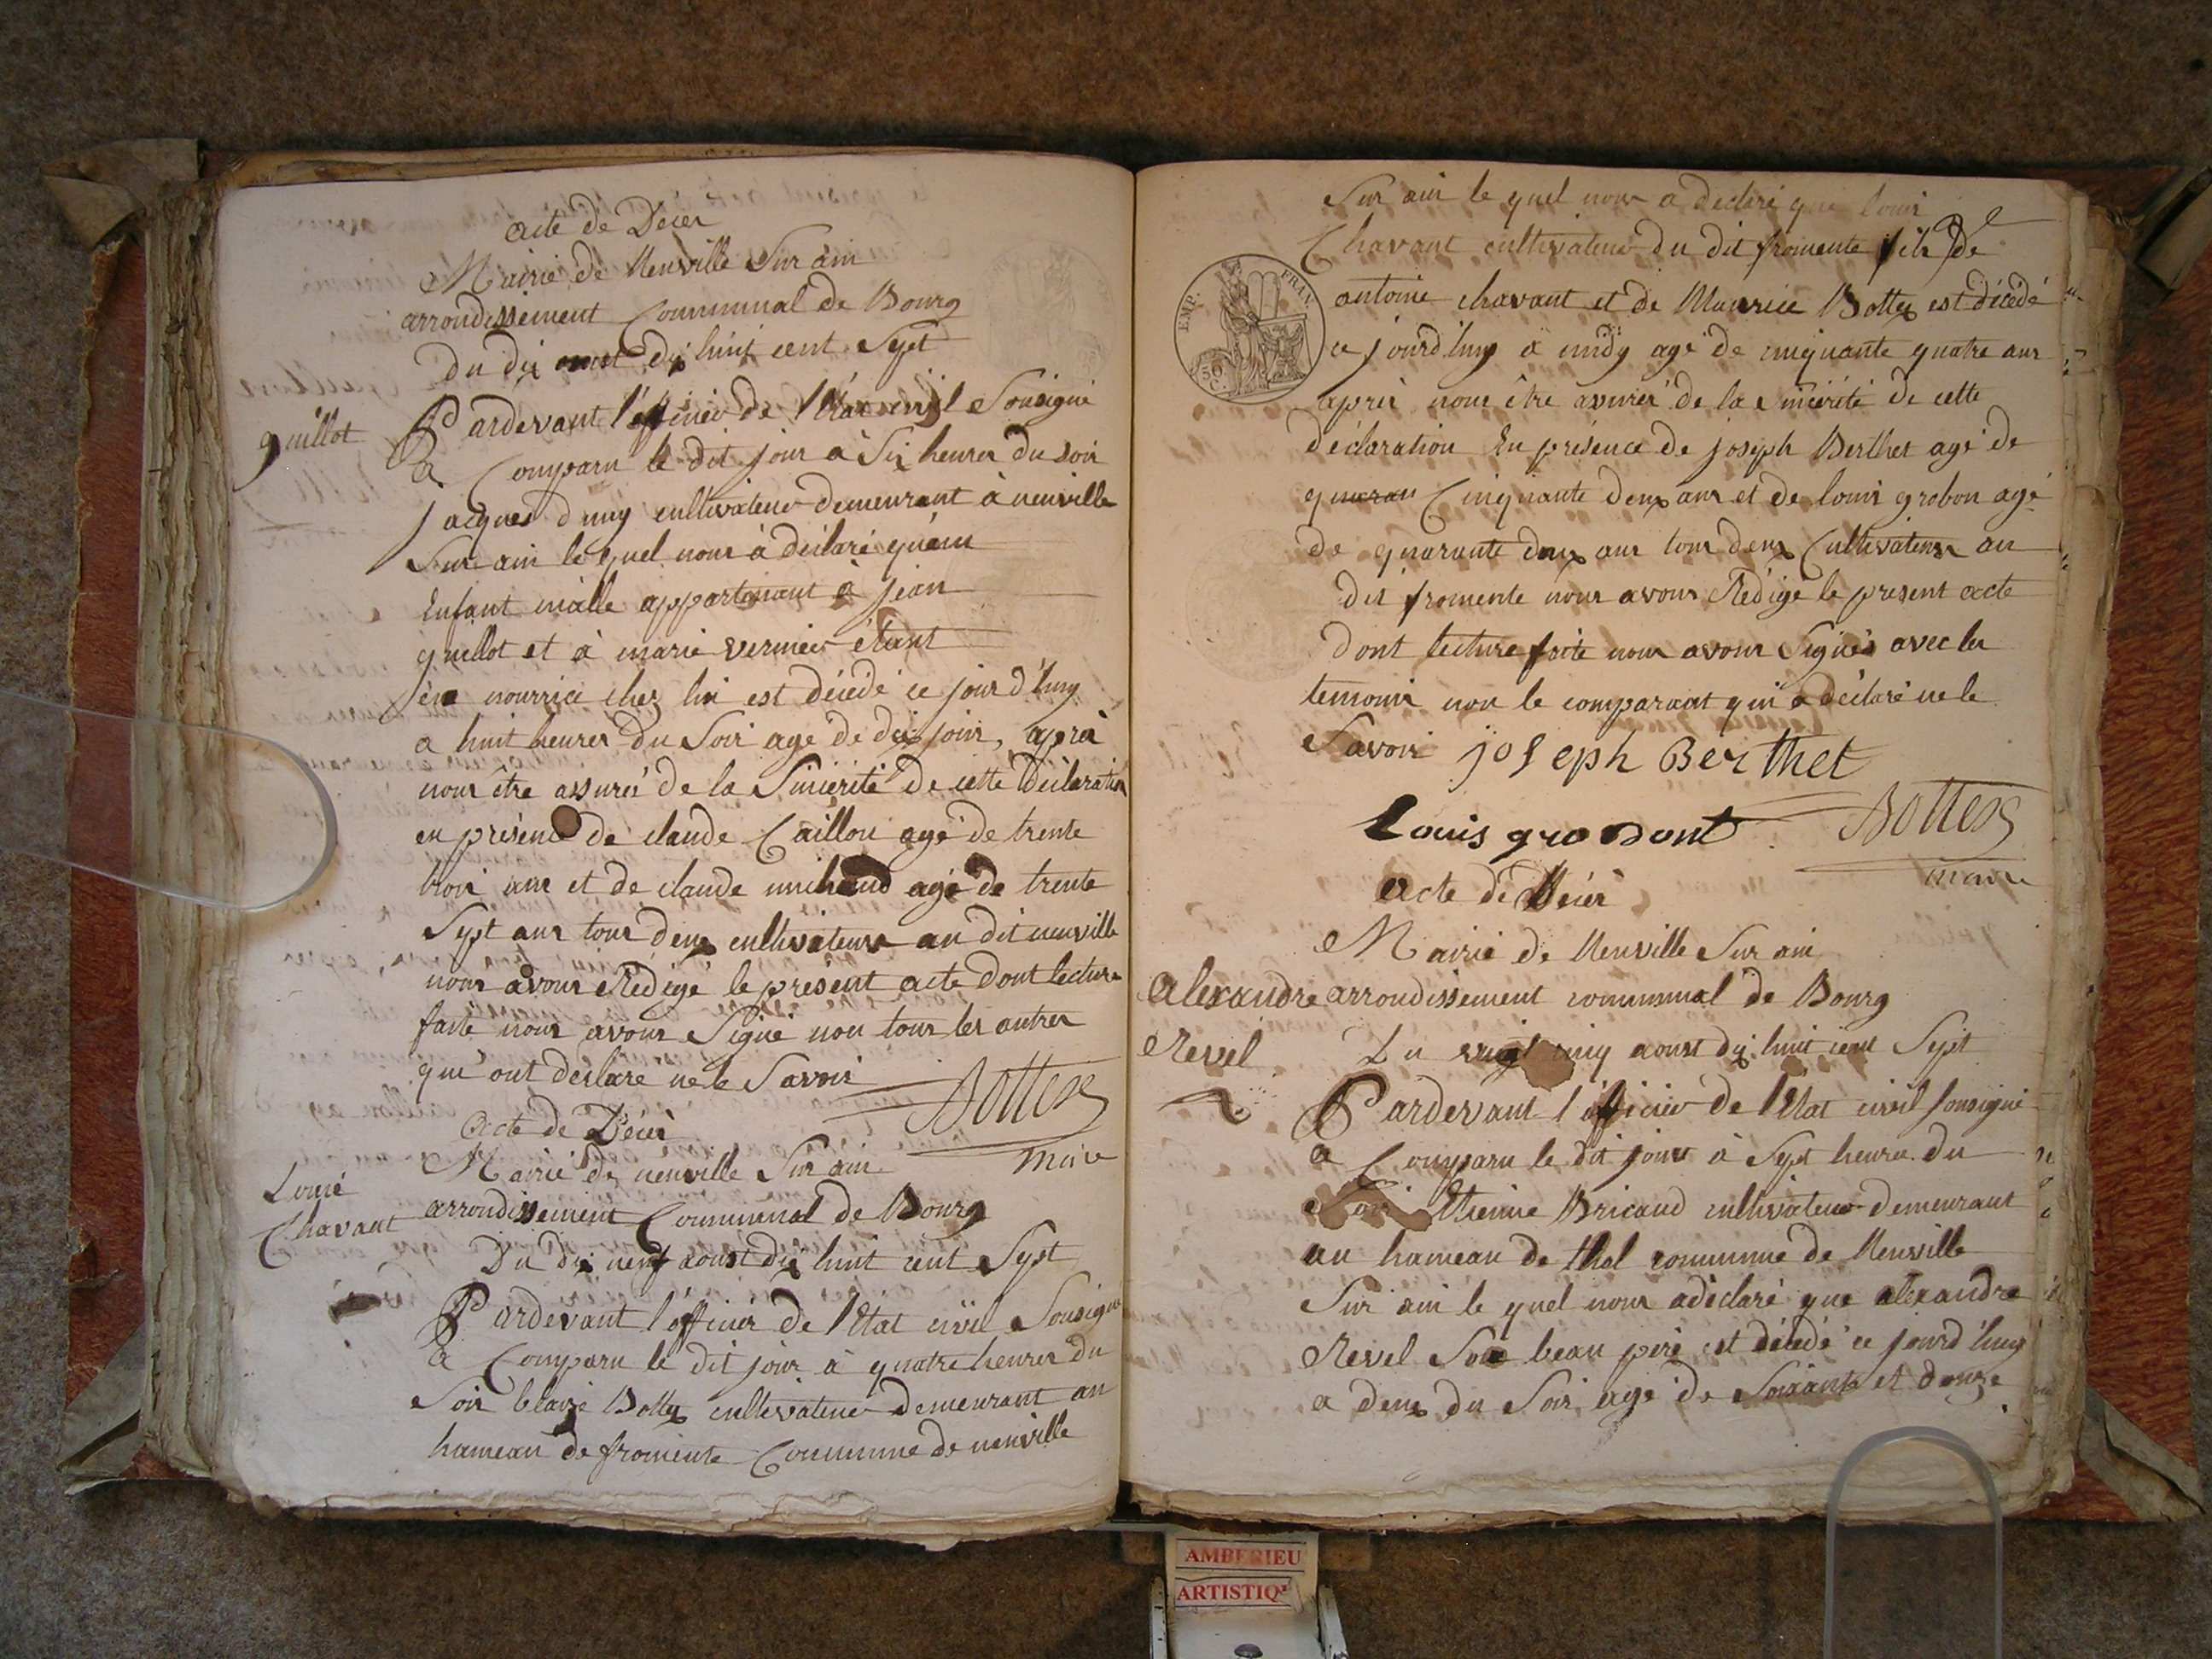 acte de Décer
Mairie de Neuville Sur ain
arrondissement Communal de Bourg
Du dix aoust dix huit cent Sept
guillot
Pardevant l'officier de l'état civil Sousigné
a Comparu le dit jour à Six heures du soir
jacques dimy cultivateur demeurant à neuville
Sur ain le quel nous à déclaré qu'un
Enfant malle appartenant à jean
guillot et à marie vernier étant
en nourrice chez lui est décédé ce jour d'huy
a huit heures du Soir agé de dix jour, après
nous être assurés de la Sincérité de cette Déclaration
en présence de claude Caillon agé de trente
trois ans et de claude michaud agé de trente
Sept ans tous deux cultivateurs au dit neuville
nous avons Rédigé le présent acte dont lecture
faite nous avons Signé non tous les autres
qui ont déclaré ne le Savoir
Bottex
maire
acte de Décès
Mairie de neuville Sur ain
Louis
Chavant
arrondissement Communal de Bourg
Du dix neuf aoust dix huit cent Sept
Pardevant l'officier de l'Etat civil Sousigné
a Comparu le dit jour à quatre heures du
Soir blaise Bottex cultivateur demeurant au
hameau de fromente Commune de neuville
Sur ain le quel nous a déclaré que louis
Chavant cultivateur du dit fromente fils de
antoine chavant et de Maurice Bottex est décédé
ce jourd'huy a midy agé de cinquante quatre ans
après nous être assurés de la sincérité de cette
déclaration En présence de joseph Berthet agé de
Cinquante deux ans et de louis grobon agé
de quarante deux ans tous deux Cultivateurs au
dit fromente nous avons Rédigé le present acte
dont lecture faite nous avons Signés avec les
temoins non le comparant qui a déclaré ne le
Savoir joseph Berthet
Louis grobont
Bottex
maire
EMP. FRAN.
50 C.
acte de Décès
Mairie de Neuville Sur ain
alexandre
Revel
arrondissement communal de Bourg
Du vingt cinq aoust dix huit cent Sept
Pardevant l'officier de l'Etat civil sousigné
a Comparu le dit jour à Sept heures du
Soir Etienne Bricaud cultivateur demeurant
au hameau de thol commune de Neuville
Sur ain le quel nous a déclaré que alexandre
Revel Son beau père est décédé ce jourd'huy
a deux du Soir agé de Soixante et douze
AMBERIEU
ARTISTIQ